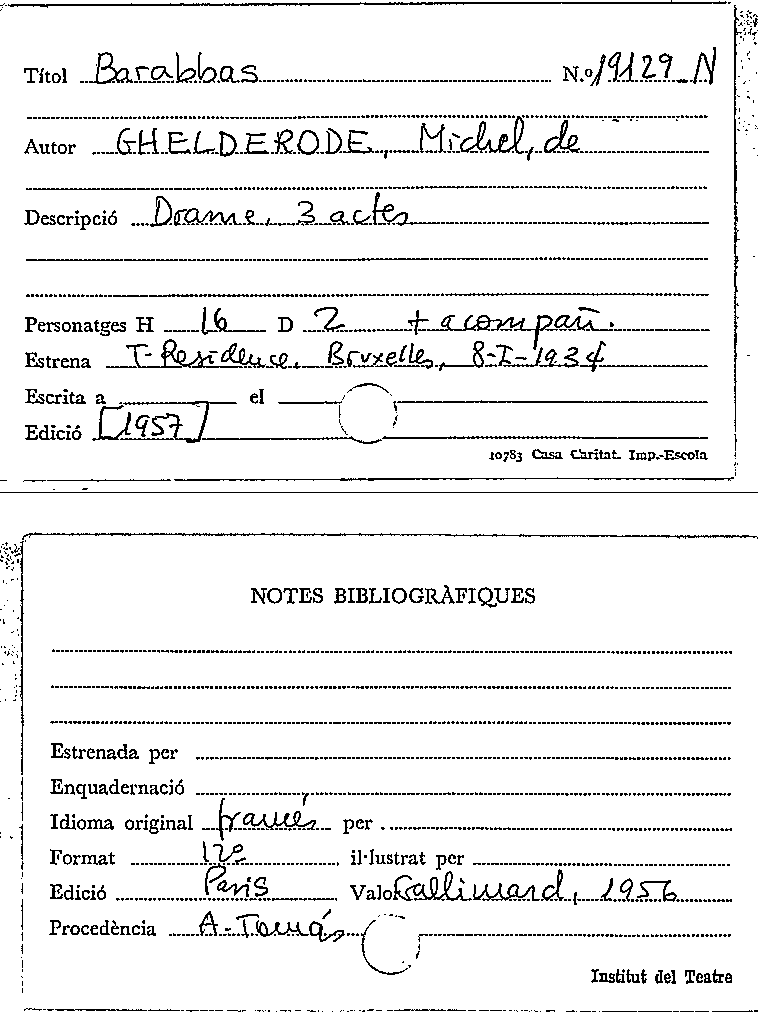 Títol Barabbas N.º 19129-N
Autor GHELDERODE, Michel, de
Descripció Drame, 3 actes
Personatges H 16 D 2 + acompañ.
Estrena T-Residence, Bruxelles, 8-I-1934
Escrita a el
Edició [1957]
10783 Casa Caritat. Imp.-Escola
NOTES BIBLIOGRÀFIQUES
Estrenada per
Enquadernació
Idioma original francés per
Format 12º il·lustrat per
Edició Paris Valor Gallimard, 1956
Procedència A-Tomás
Institut del Teatre